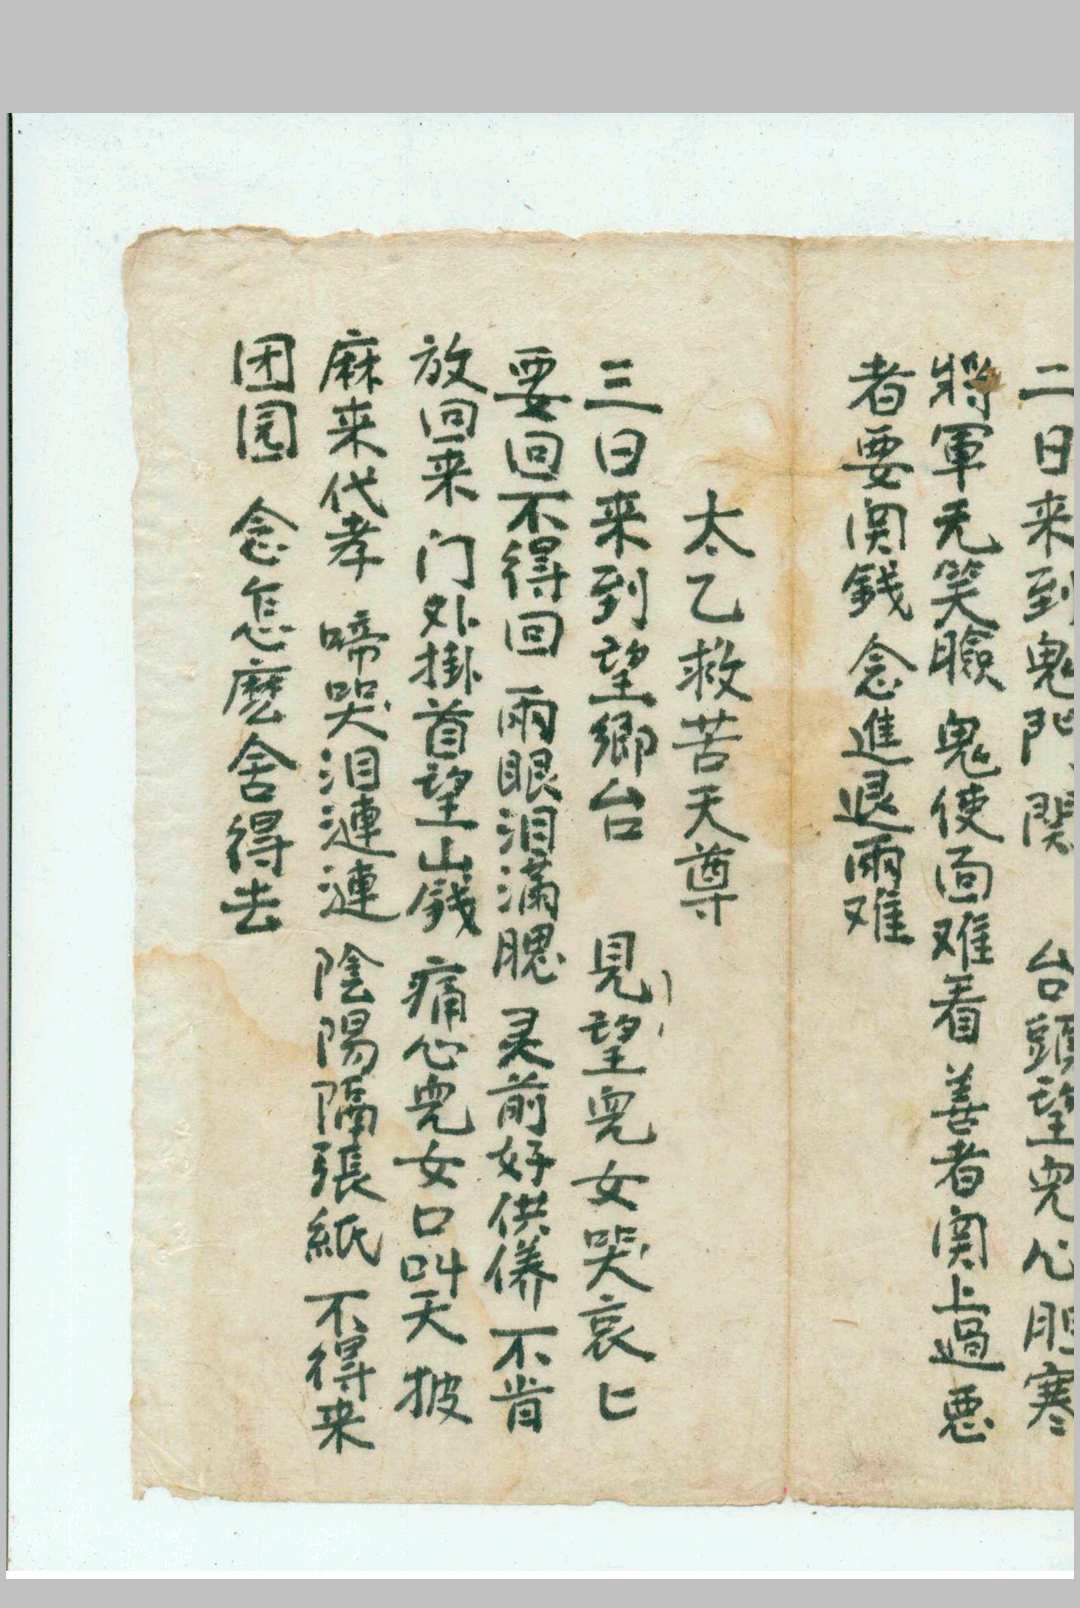 二日来到鬼門関 台頭望兒心胆寒
將軍无笑臉 鬼使面难看 善者関上過 悪
者要関錢 念進退兩难
太乙救苦天尊
三日来到望鄉台 見望兒女哭哀匕
要回不得回 兩眼泪滿腮 灵前好供养 不肯
放回来 门外掛首望山錢 痛心兒女口叫天 披
麻来代孝 啼哭泪漣漣 陰陽隔張紙 不得来
团园 念怎麽舍得去